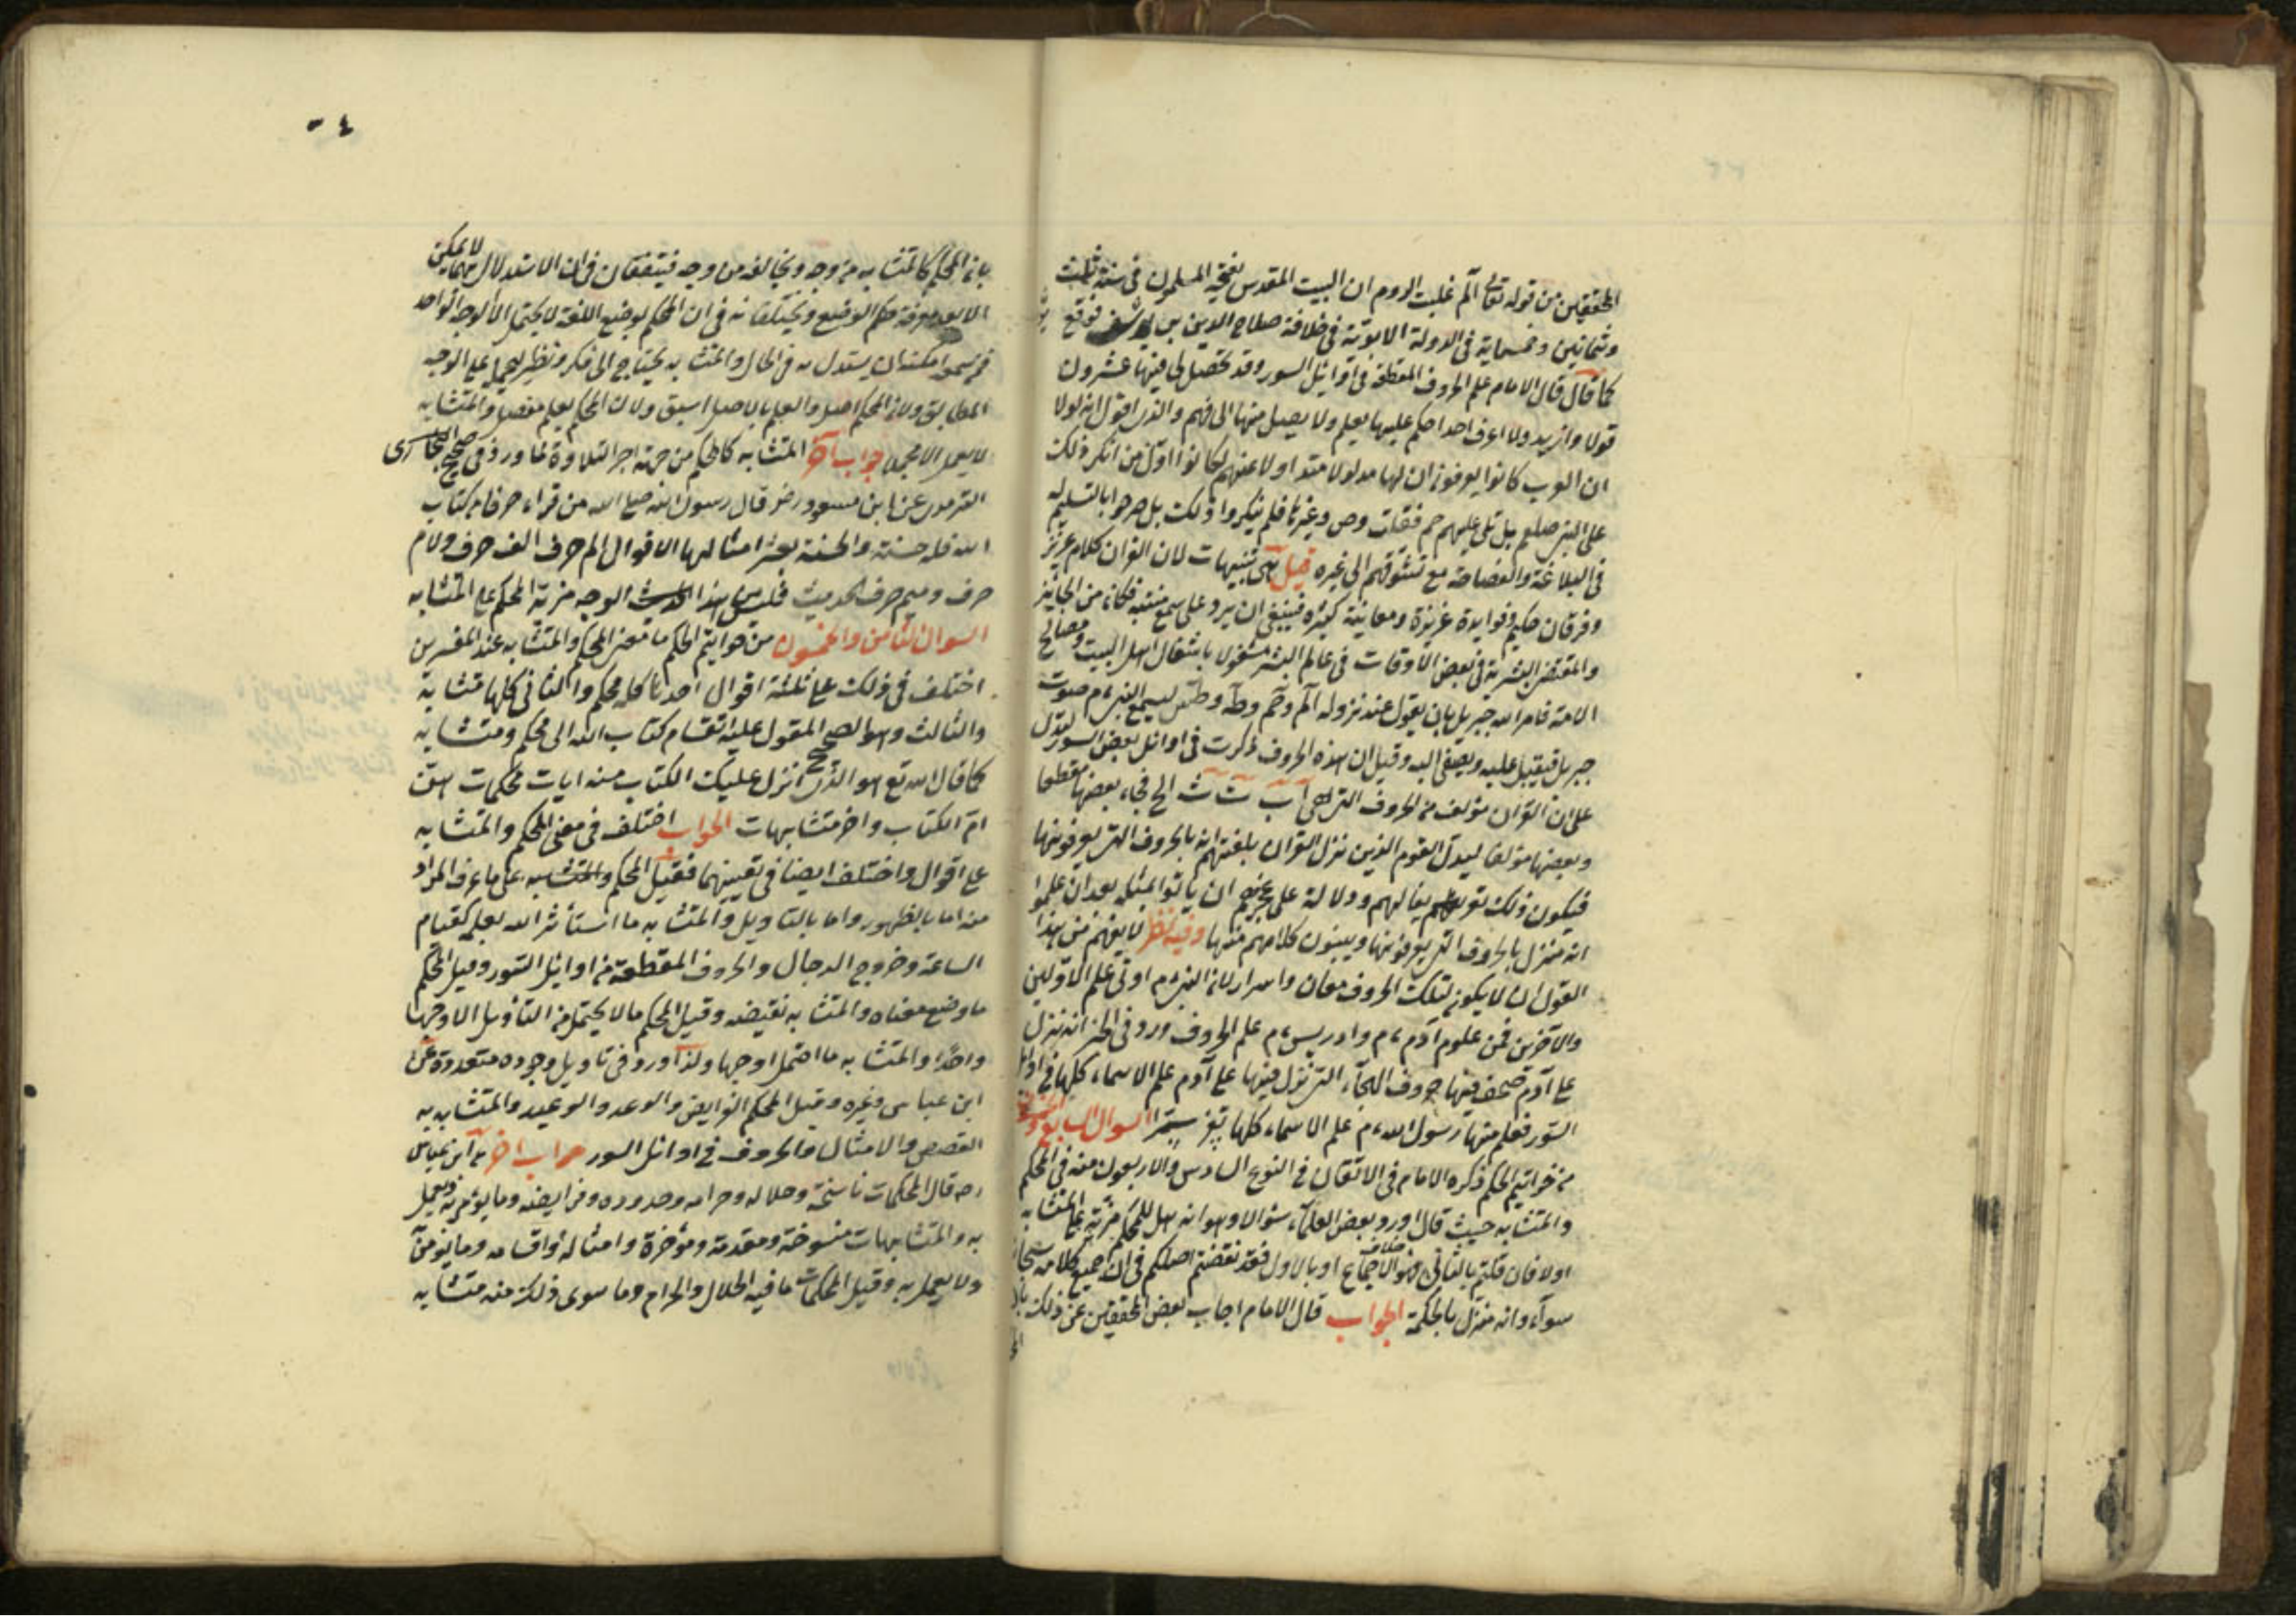 المحققين من قوله تعالى الم غلبت الروم ان البيت المقدس يفتحه المسلمون فى سنة ثلث
وثمانين وخمسماية فى الدولة الايوبية فى خلافة صلاح الدين بن يوسف فوقع
كما قال قال الامام علم الحروف المقطعة فى اوائل السور وقد تحصل لى فيها عشرون
قولا وازيد ولا اعرف احدا حكم عليها بعلم ولا يصل منها الى فهم والذى اقول انه لولا
ان العرب كانوا يعرفون ان لها مدلولا متداولا عنهم لكانوا اول من انكر ذلك
على النبى صلعم بل تلى عليهم حم فصلت وص وغيرها فلم ينكروا ذلك بل صرحوا بالتسليم
فى البلاغة والفصاحة مع تشوقهم الى غيره قيل هى تنبيهات لان القران كلام عزيز
وفرقان حكيم وفوايده غزيزة ومعانيه كثيره فينبغى ان يرد على سمع منتبه فكان من الجائز
والمقتضى البشرية فى بعض الاوقات فى عالم البشر مشغولا باشغال اهل البيت ومصالح
الامة فامر الله جبريل بان يقول عند نزوله الم وحم وطه وطس ليسمع النبى ءم صوت
جبريل فيقبل عليه ويصغى اليه وقيل ان هذه الحروف ذكرت فى اوائل بعض السور لتدل
على ان القران مؤلف من الحروف التى هى آ ب ت ث الخ فجاء بعضها مقطعا
وبعضها مؤلفا ليدل القوم الذين نزل القران بلغتهم انه بالحروف التى يعرفونها
فيكون ذلك تقريعا لهم ودلالة على عجزهم ان ياتوا بمثله بعد ان علموا
انه منزل بالحروف التى يعرفونها ويبنون كلامهم منها وفيه نظر لما يفهم من هذا
القول ان لا يكون لتلك الحروف معان واسرار لان النبى ءم اوتى علم الاولين
والآخرين فمن علوم آدم ءم وادريس ءم علم الحروف ورد فى الخبر انه نزل
على آدم صحف فيها حروف الهجاء التى نزل فيها على آدم علم الاسماء كلها فى اوائل
السور فعلم منها رسول الله ءم علم الاسماء كلها السوال السابع والخمسون
من خواتيم الحكم ذكره الامام فى الاتقان فى النوع السادس والاربعون منه فى المحكم
والمتشابه حيث قال اورد بعض العلماء سئوالا وهو انه هل للمحكم مزية على المتشابه
اولا فان قلتم بالثانى فهو خلاف الاجماع او بالاول فقد نقضتم اصلكم فى ان جميع كلامه سبحانه
سوآء وانه منزل بالحكمة الجواب قال الامام اجاب بعض المحققين عن ذلك بان
بان المحكم كالمتشابه من وجه ويخالفه من وجه فيتفقان فى ان الاستدلال بهما لا يمكن
الا بعد معرفة حكم الوضع ويختلفان فى ان المحكم بوضع اللغة لا يحتمل الا الوجه الواحد
فمن سمعه امكنه ان يستدل به فى الحال والمتشابه يحتاج الى فكر ونظر ليحمله على الوجه
المطابق ولان المحكم اصل والعلم بالاصل اسبق ولان المحكم يعلم مفصلا والمتشابه
لا يعلم الا مجملا جواب آخر المتشابه كالمحكم من جهة اجر التلاوة لما ورد فى صحيح البخارى
الترمدى عن ابن مسعود رضى قال رسول الله صلى الله من قراء حرفا من كتاب
الله فله حسنة والحسنة بعشر امثالها لا اقول الم حرف الف حرف ولام
حرف وميم حرف الحديث فليس بهذا الوجه مزية المحكم على المتشابه
السوال الثامن والخمسون من خواتيم الحكم ما معنى المحكم والمتشابه عند المفسرين
اختلف فى ذلك على ثلثة اقوال احدها كله محكم والثانى كلها متشابه
والثالث وهو الصحيح المقول عليه انقسام كتاب الله الى محكم ومتشابه
كما قال الله تع هو الذى انزل عليك الكتاب منه ايات محكمات هن
ام الكتاب واخر متشابهات الجواب اختلف فى معنى المحكم والمتشابه
على اقوال واختلف ايضا فى تعيينهما فقيل المحكم والمتشابه على ما عرف المراد
منه اما بالظهور واما بالتاويل والمتشابه ما استأثر الله بعلمه كقيام
الساعة وخروج الدجال والحروف المقطعة من اوايل السور وقيل المحكم
ما وضح معناه والمتشابه نقيضه وقيل المحكم ما لا يحتمل من التأويل الا وجها
واحدا والمتشابه ما احتمل اوجها ولذا ورد فى تاويل وجوده متعددة عن
ابن عباس وغيره وقيل المحكم الفرايض والوعد والوعيد والمتشابه به
القصص والامثال والحروف فى اوائل السور جواب اخر عن ابن عباس
رضه قال المحكمات ناسخه وحلاله وحرامه وحدوده وفرايضه وما يؤمن به ويعمل
به والمتشابهات منسوخة ومقدمة ومؤخرة وامثاله واقسامه وما يؤمن
ولا يعمل به وقيل المحكمات ما فيه الحلال والحرام وما سوى ذلك منه متشابه